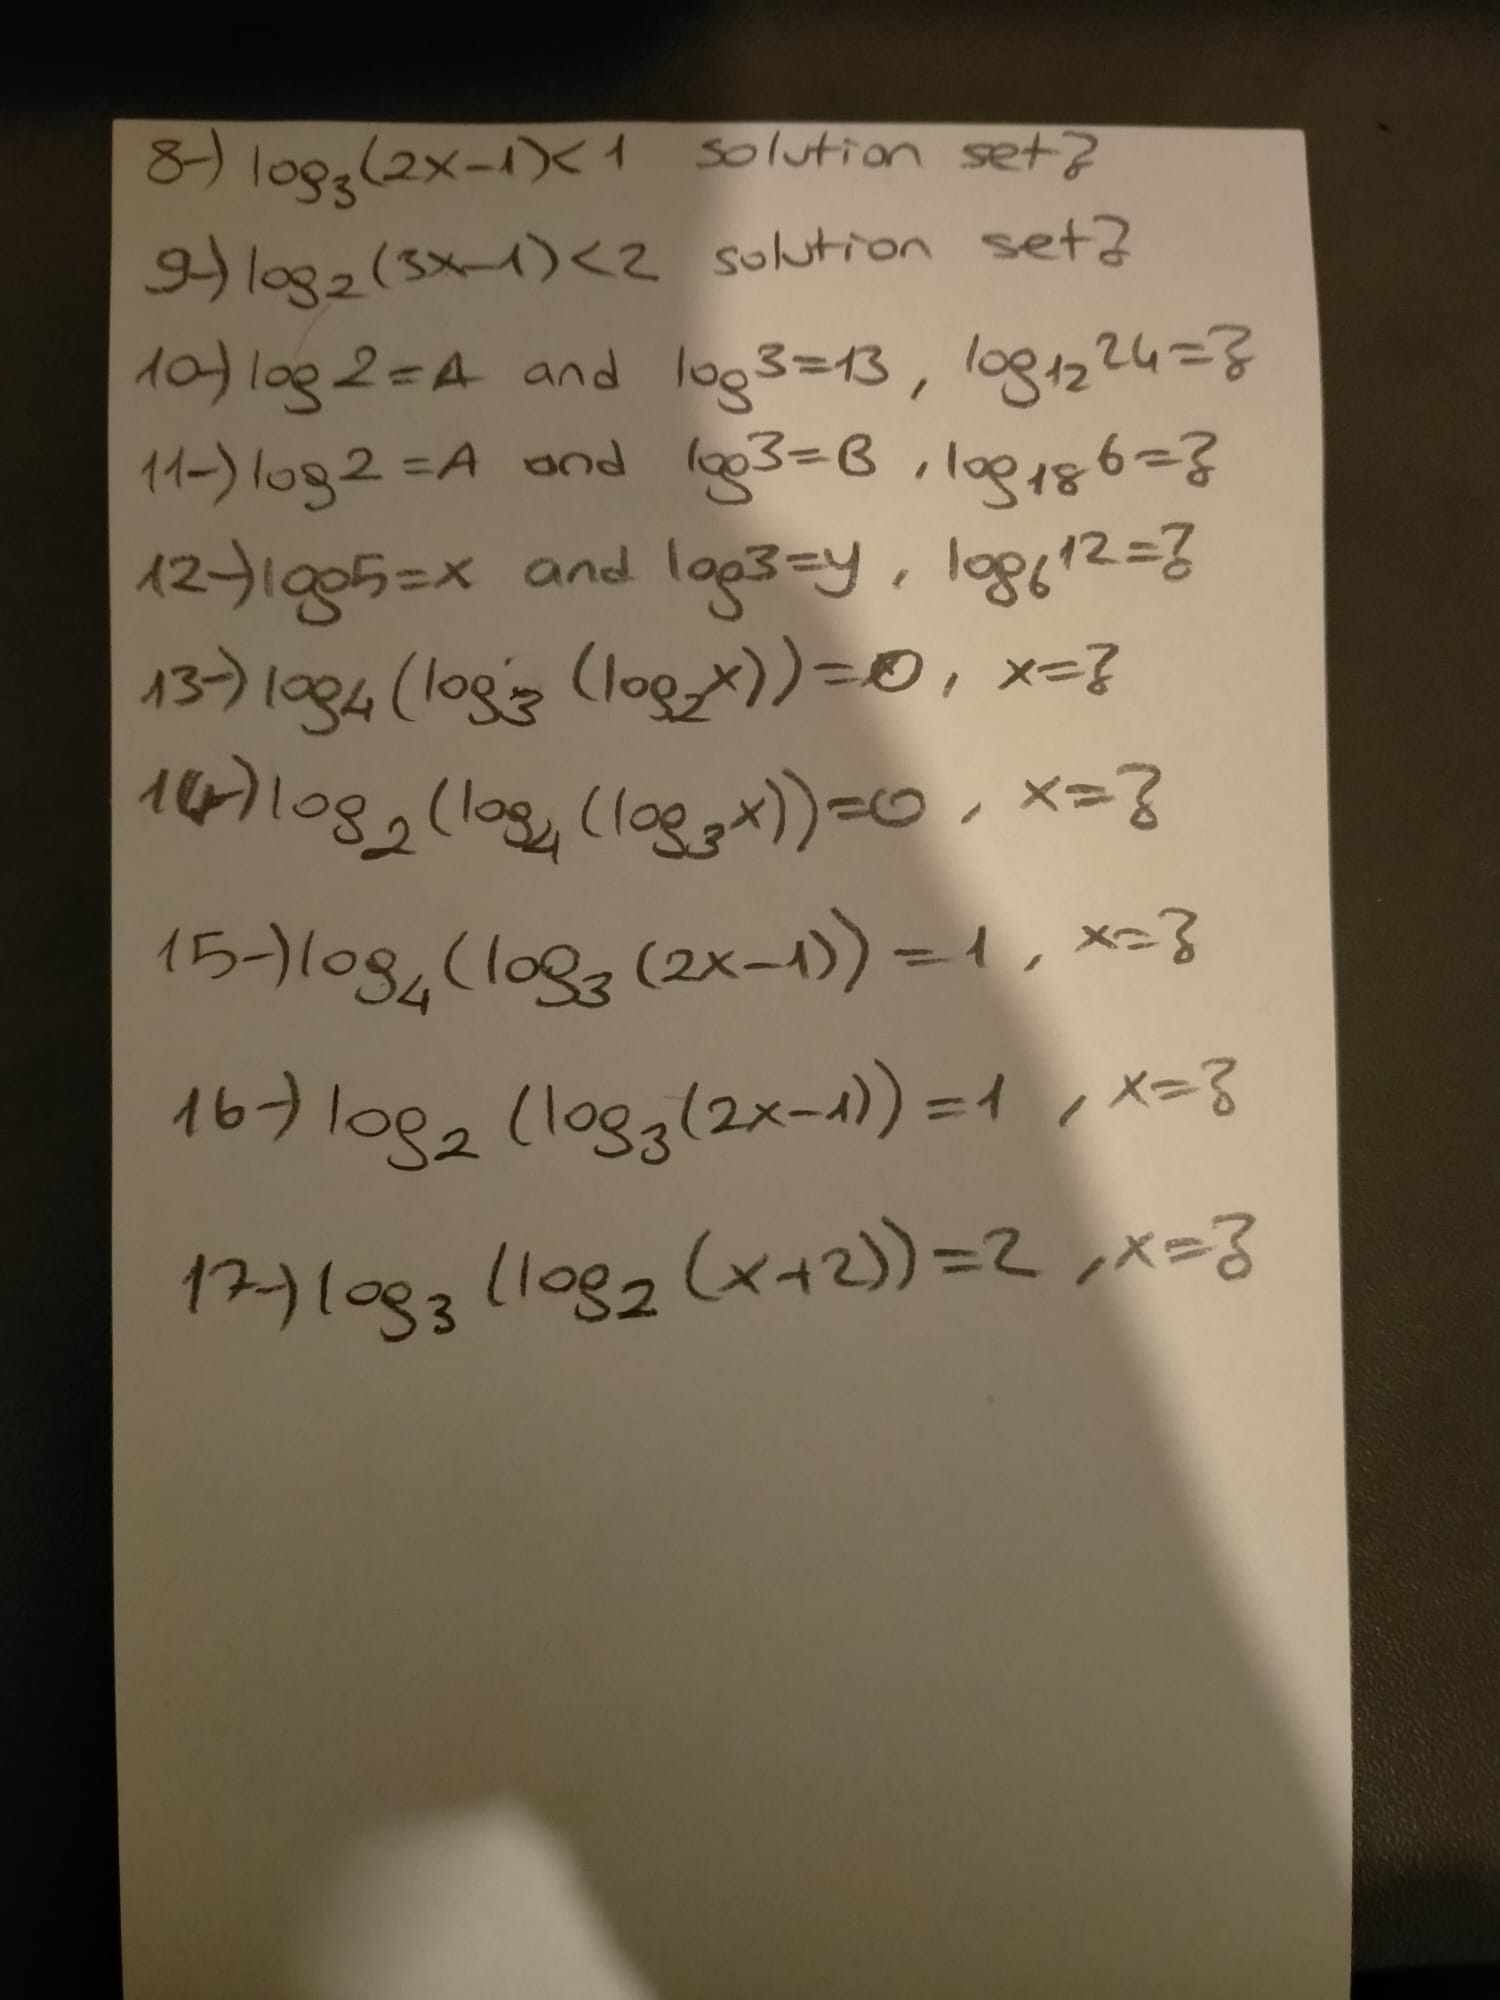 8-) log₃(2x-1)<1 solution set?
9-) log₂(3x-1)<2 solution set?
10-) log2=A and log3=13, log₁₂24=?
11-) log2=A and log3=B, log₁₈6=?
12-) log5=x and log3=y, log₆12=?
13-) log₄(log₃(log₂x))=0, x=?
14-) log₂(log₄(log₃x))=0, x=?
15-) log₄(log₃(2x-1))=1, x=?
16-) log₂(log₃(2x-1))=1, x=?
17-) log₃(log₂(x+2))=2, x=?